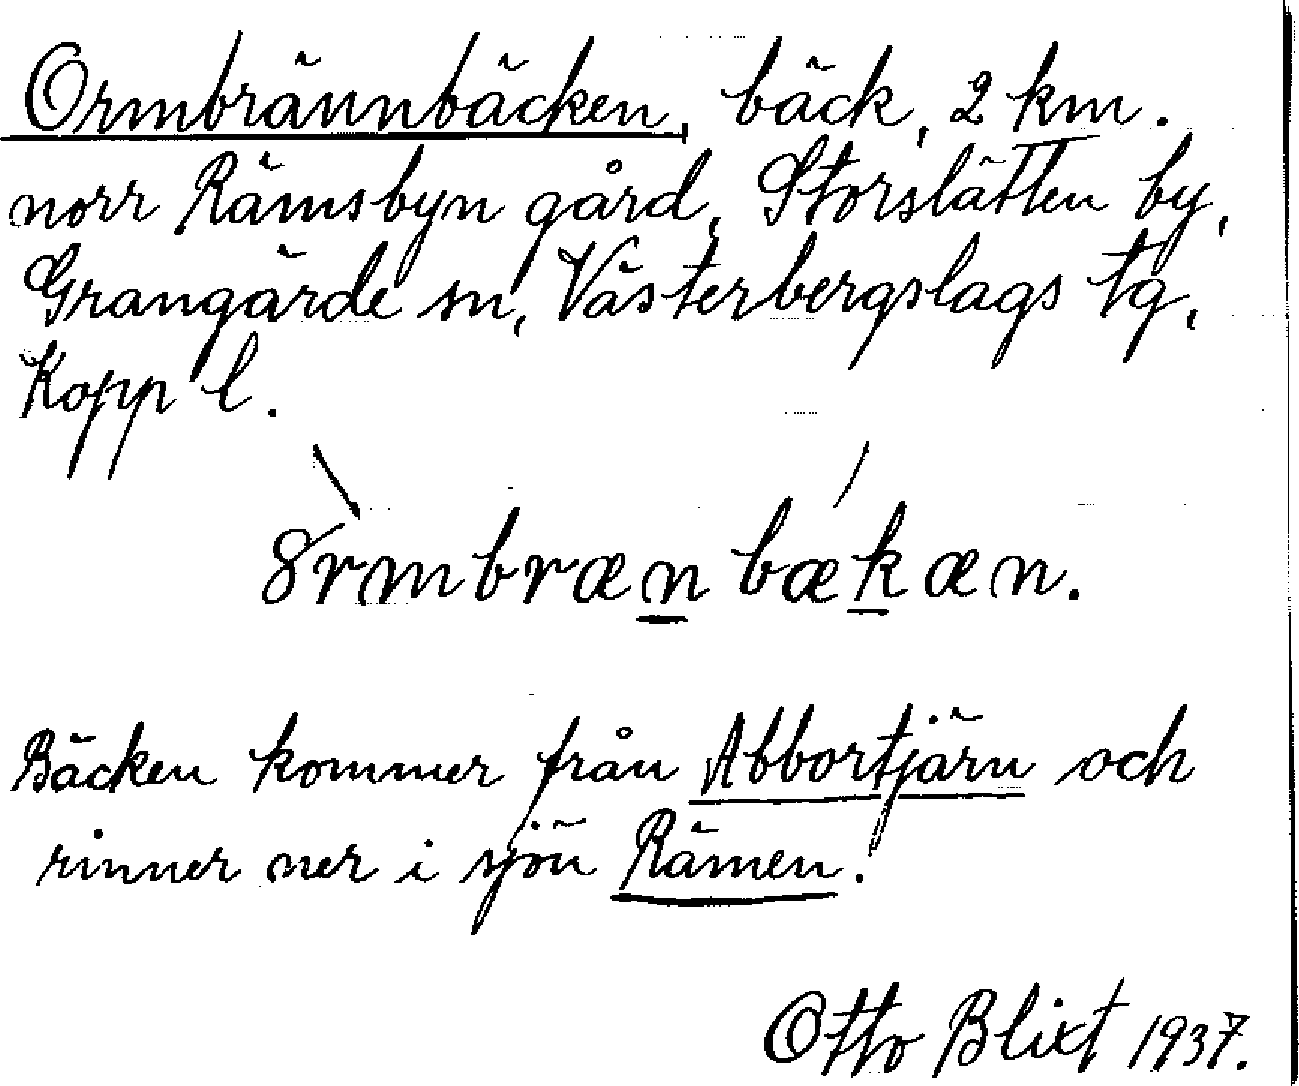 Ormbrännbäcken, bäck, 2 km.
norr Rämsbyn gård, Storslätten by,
Grangärde sn, Västerbergslags tg,
Kopp l.
8rmbrænbækæn.
Bäcken kommer från Abbortjärn och
rinner ner i sjön Rämen.
Otto Blixt 1937.